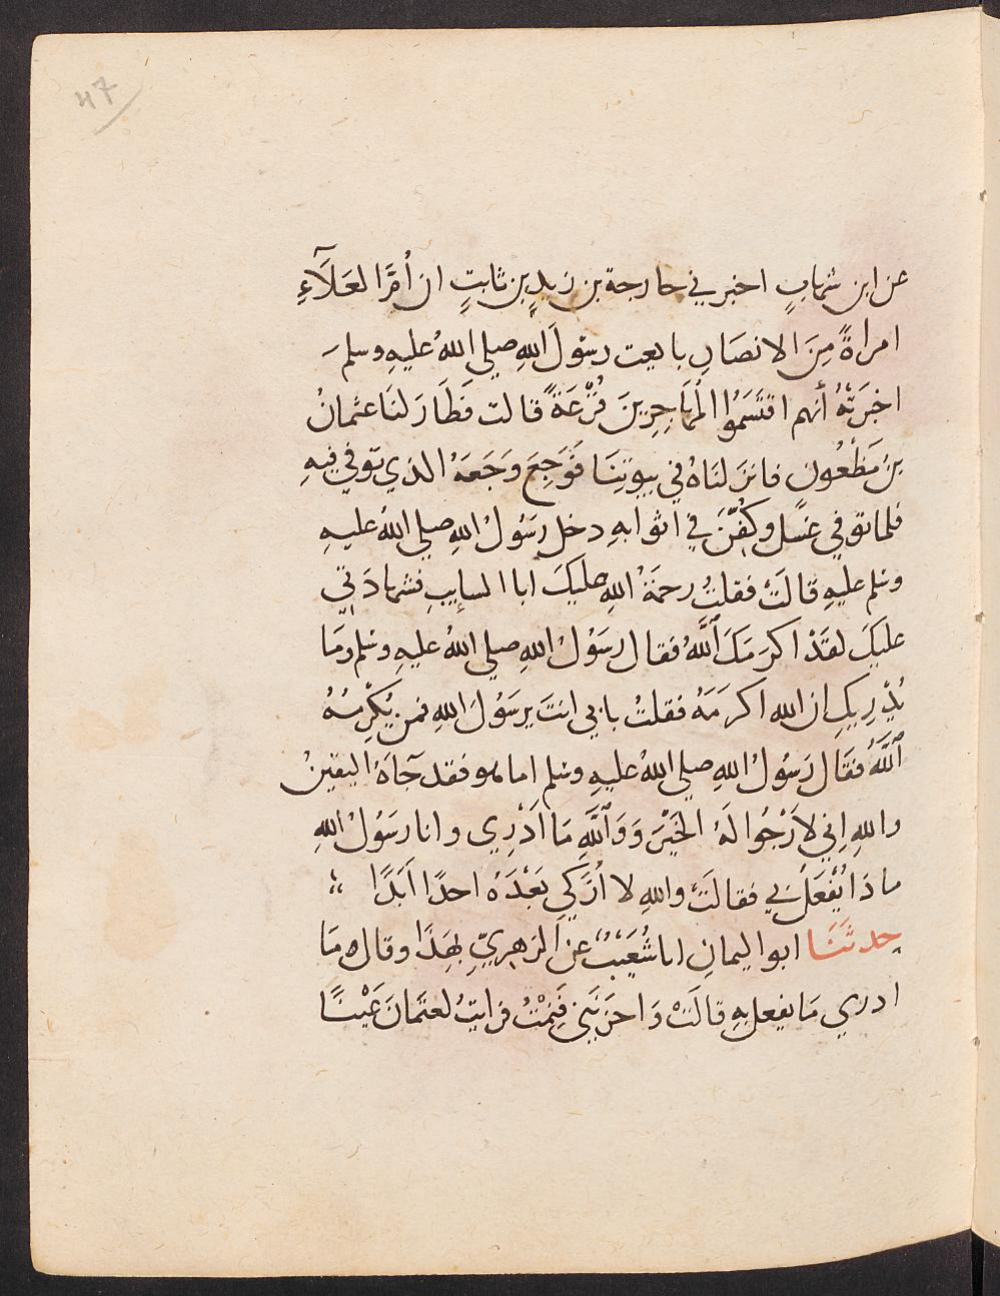 47
عن ابن شهابٍ اخبرني خارجة بن زيدِ بن ثابتٍ ان أُمَّ العَلَآءِ
امراةً مِنَ الانصَارِ بايعت رسُولَ اللهِ صلي اللهُ عليهِ وسلمَ
اخبَرَتْهُ أنهم اقتَسَمُوا المُهَاجِرِينَ قُرْعَةً قالت فَطَارَ لنَا عثمانُ
بنُ مَظْعُون فانزلنَاهُ في بيوتِنَا فَوَجِعَ وَجَعَهُ الذي توفي فيهِ
فلما توفي غسِّل وكُفِّنَ في اثوابهِ دخل رَسُولُ اللهِ صلي اللهُ عليهِ
وسلم عليهِ قالَتْ فقلتُ رحمَةُ اللهِ عليكَ ابا السايبِ فشهادَتِي
عليكَ لقَدْ اكرَمَكَ ٱللَّهُ فقال رسَوُلُ اللهِ صلي اللهُ عليهِ وسلم ومَا
يُدْرِيكِ ان الله اكرَمَهُ فقلتُ بابي انتَ يرسَوُلَ اللهِ فمن يُكْرِمُهُ
ٱللَّهُ فقَال رَسُولُ اللهِ صلي اللهُ عليهِ وسلم اما هو فقد جآءَهُ اليقينُ
واللهِ اِني لاَرْجُوا لَهُ الخَيْرَ وَوَٱللَّهِ مَا اَدْرِي وانا رسَوُلُ اللهِ
ماذَا يُفْعَلُ بي فقالَتْ واللهِ لا اُزَكِّي بَعْدَهُ احدًا اَبَدًا
حدثَنَا ابو اليمانِ انا شُعَيْبٌ عن الزهرِيِّ بِهَذَا وقال مَا
ادري مَا يفعل بِهِ قالَتْ وَاحزَنَنِي فَنِمْتُ فرايتُ لعثمَانَ عَيْنًا